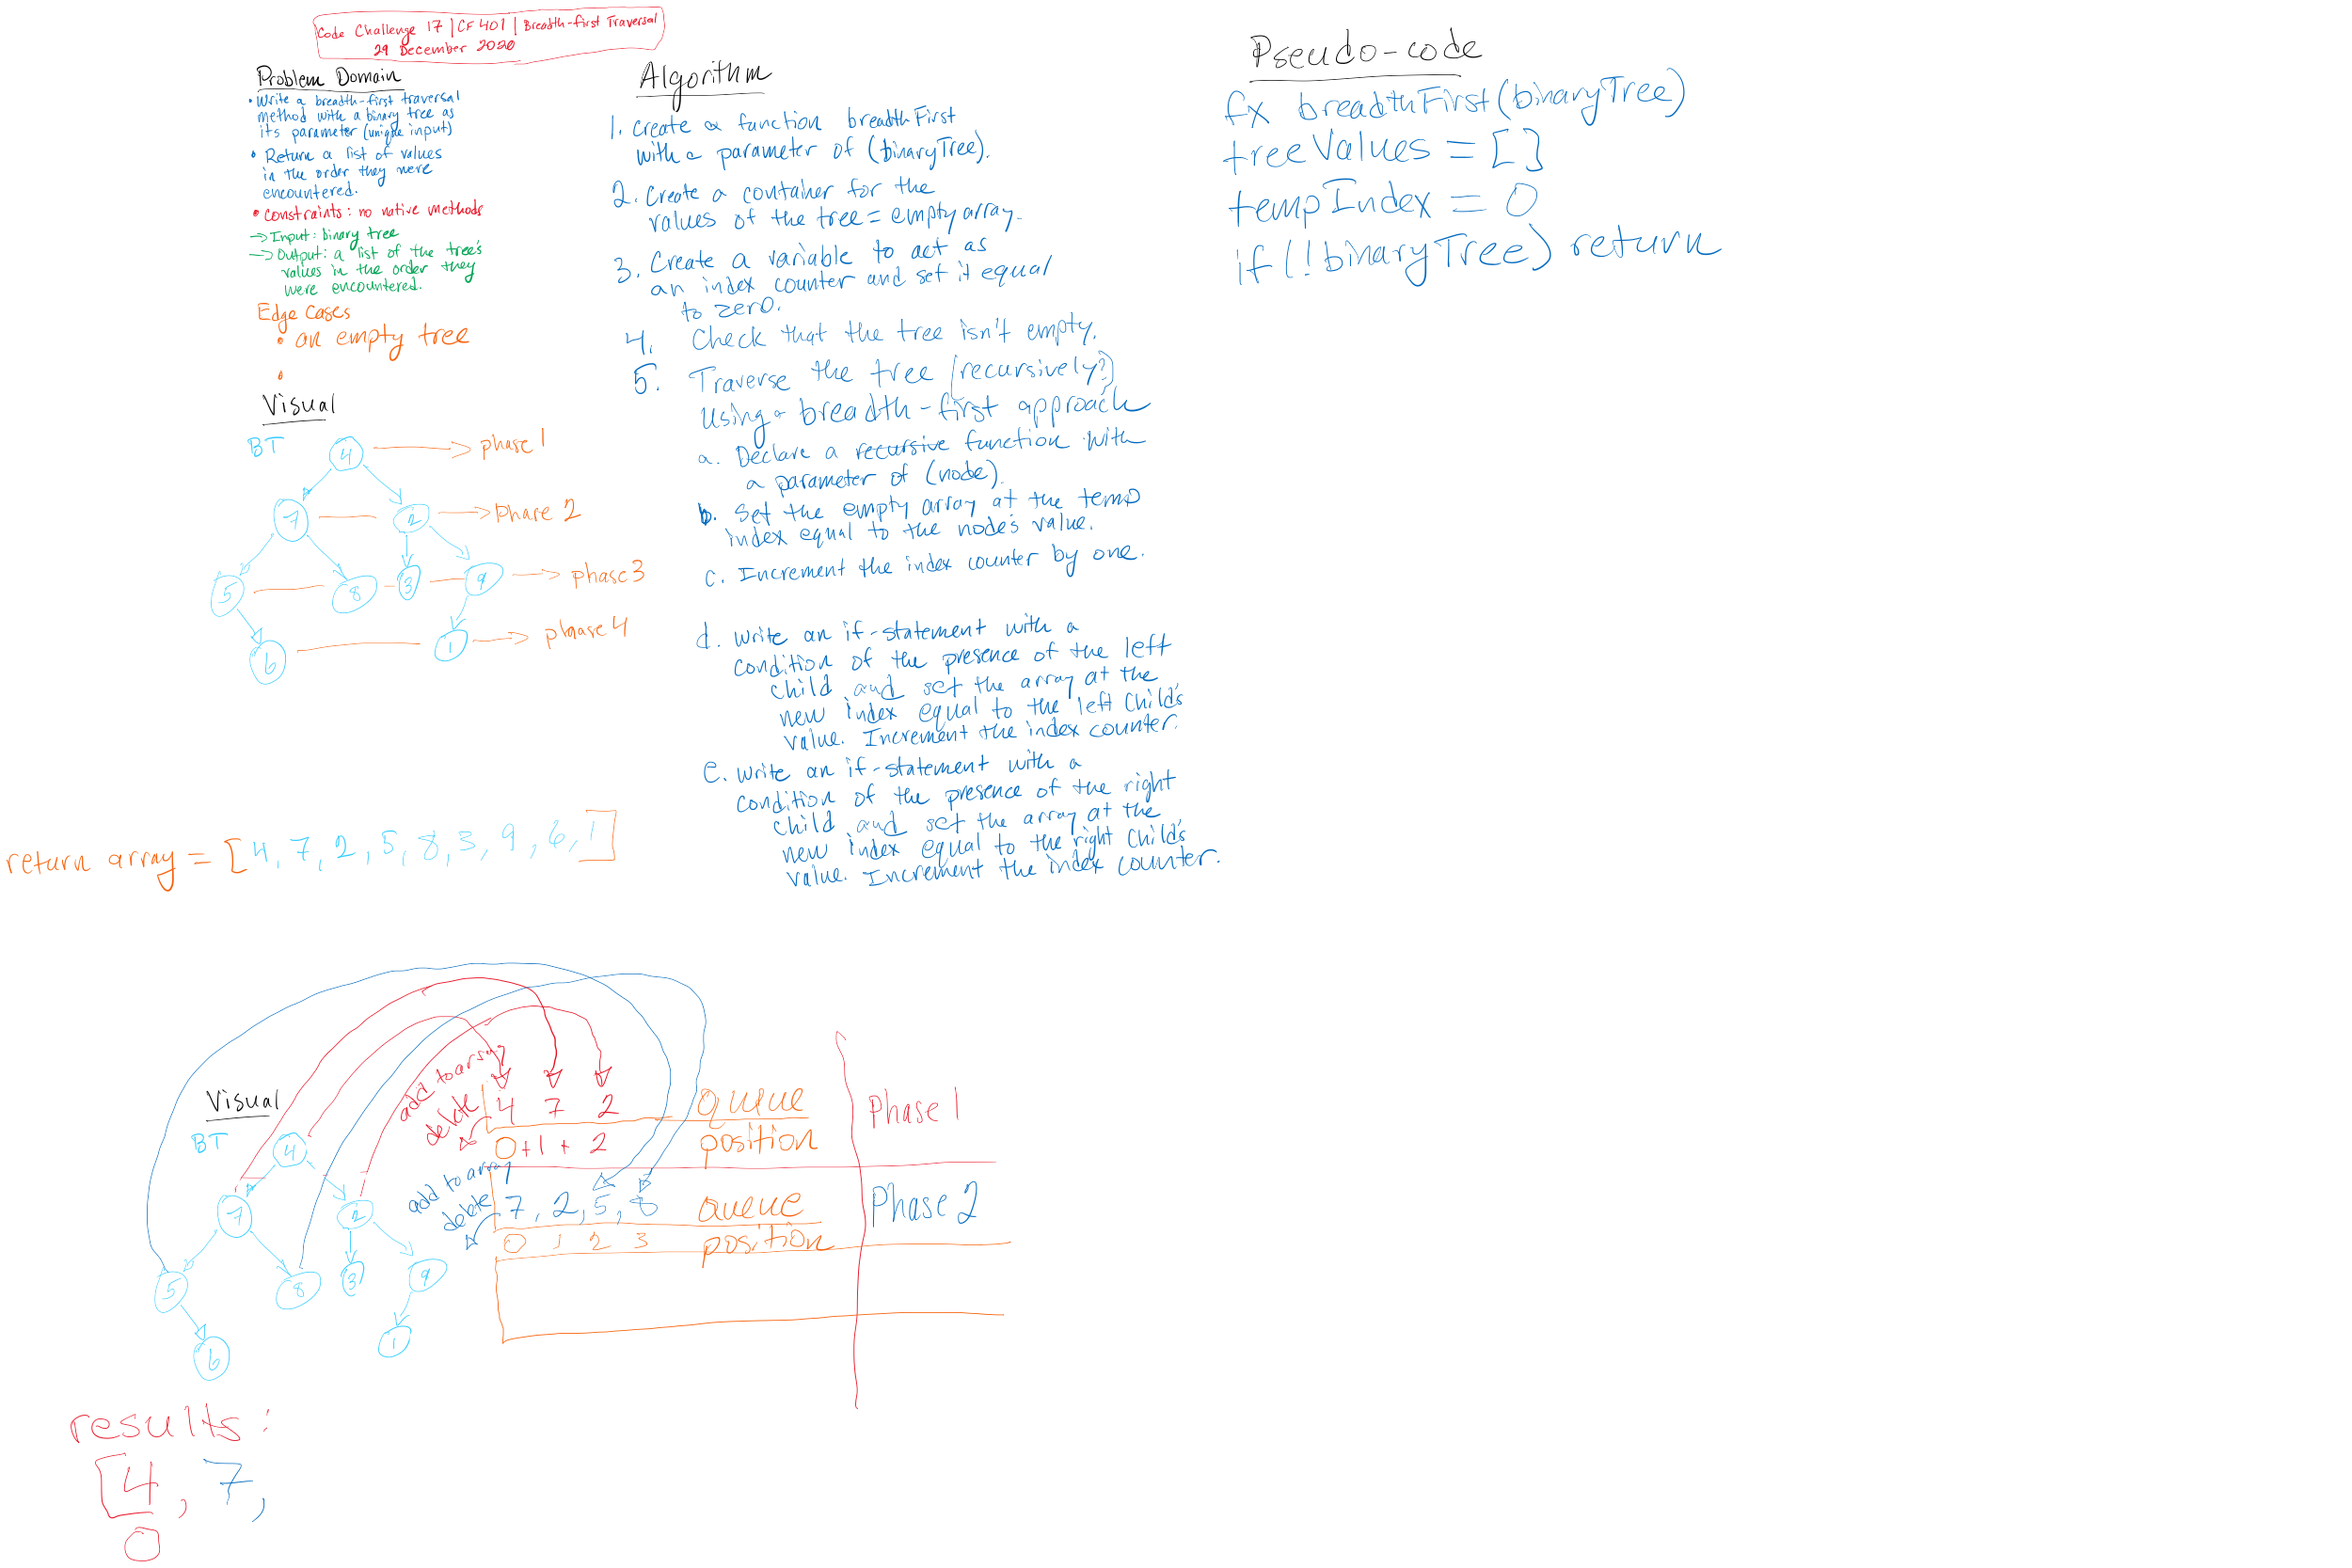 Code Challenge 17 | CF 401 | Breadth-first Traversal
29 December 2020
Problem Domain
• Write a breadth-first traversal
method with a binary tree as
its parameter (unique input)
• Return a list of values
in the order they were
encountered.
• Constraints: no native methods
→ Input: binary tree
→ Output: a list of the tree's
values in the order they
were encountered.
Edge Cases
• an empty tree
•
Visual
BT
4 → phase 1
7 2 → Phase 2
5 8 3 9 → phase 3
6 1 → phase 4
return array = [4, 7, 2, 5, 8, 3, 9, 6, 1]
Algorithm
1. Create a function breadthFirst
with a parameter of (binaryTree).
2. Create a container for the
values of the tree = empty array.
3. Create a variable to act as
an index counter and set it equal
to zero.
4. Check that the tree isn't empty.
5. Traverse the tree (recursively?)
using a breadth-first approach
a. Declare a recursive function with
a parameter of (node).
b. Set the empty array at the temp
index equal to the node's value.
c. Increment the index counter by one.
d. Write an if-statement with a
condition of the presence of the left
child and set the array at the
new index equal to the left child's
value. Increment the index counter.
e. Write an if-statement with a
condition of the presence of the right
child and set the array at the
new index equal to the right child's
value. Increment the index counter.
Pseudo-code
fx breadthFirst(binaryTree)
treeValues = []
tempIndex = 0
if (!binaryTree) return
Visual
BT
4
7 2
5 8 3 9
6 1
add to array
delete
4 7 2 queue
0 + 1 + 2 position
Phase 1
add to array
delete
7, 2, 5, 8 queue
0 1 2 3 position
Phase 2
results:
[4, 7,
0